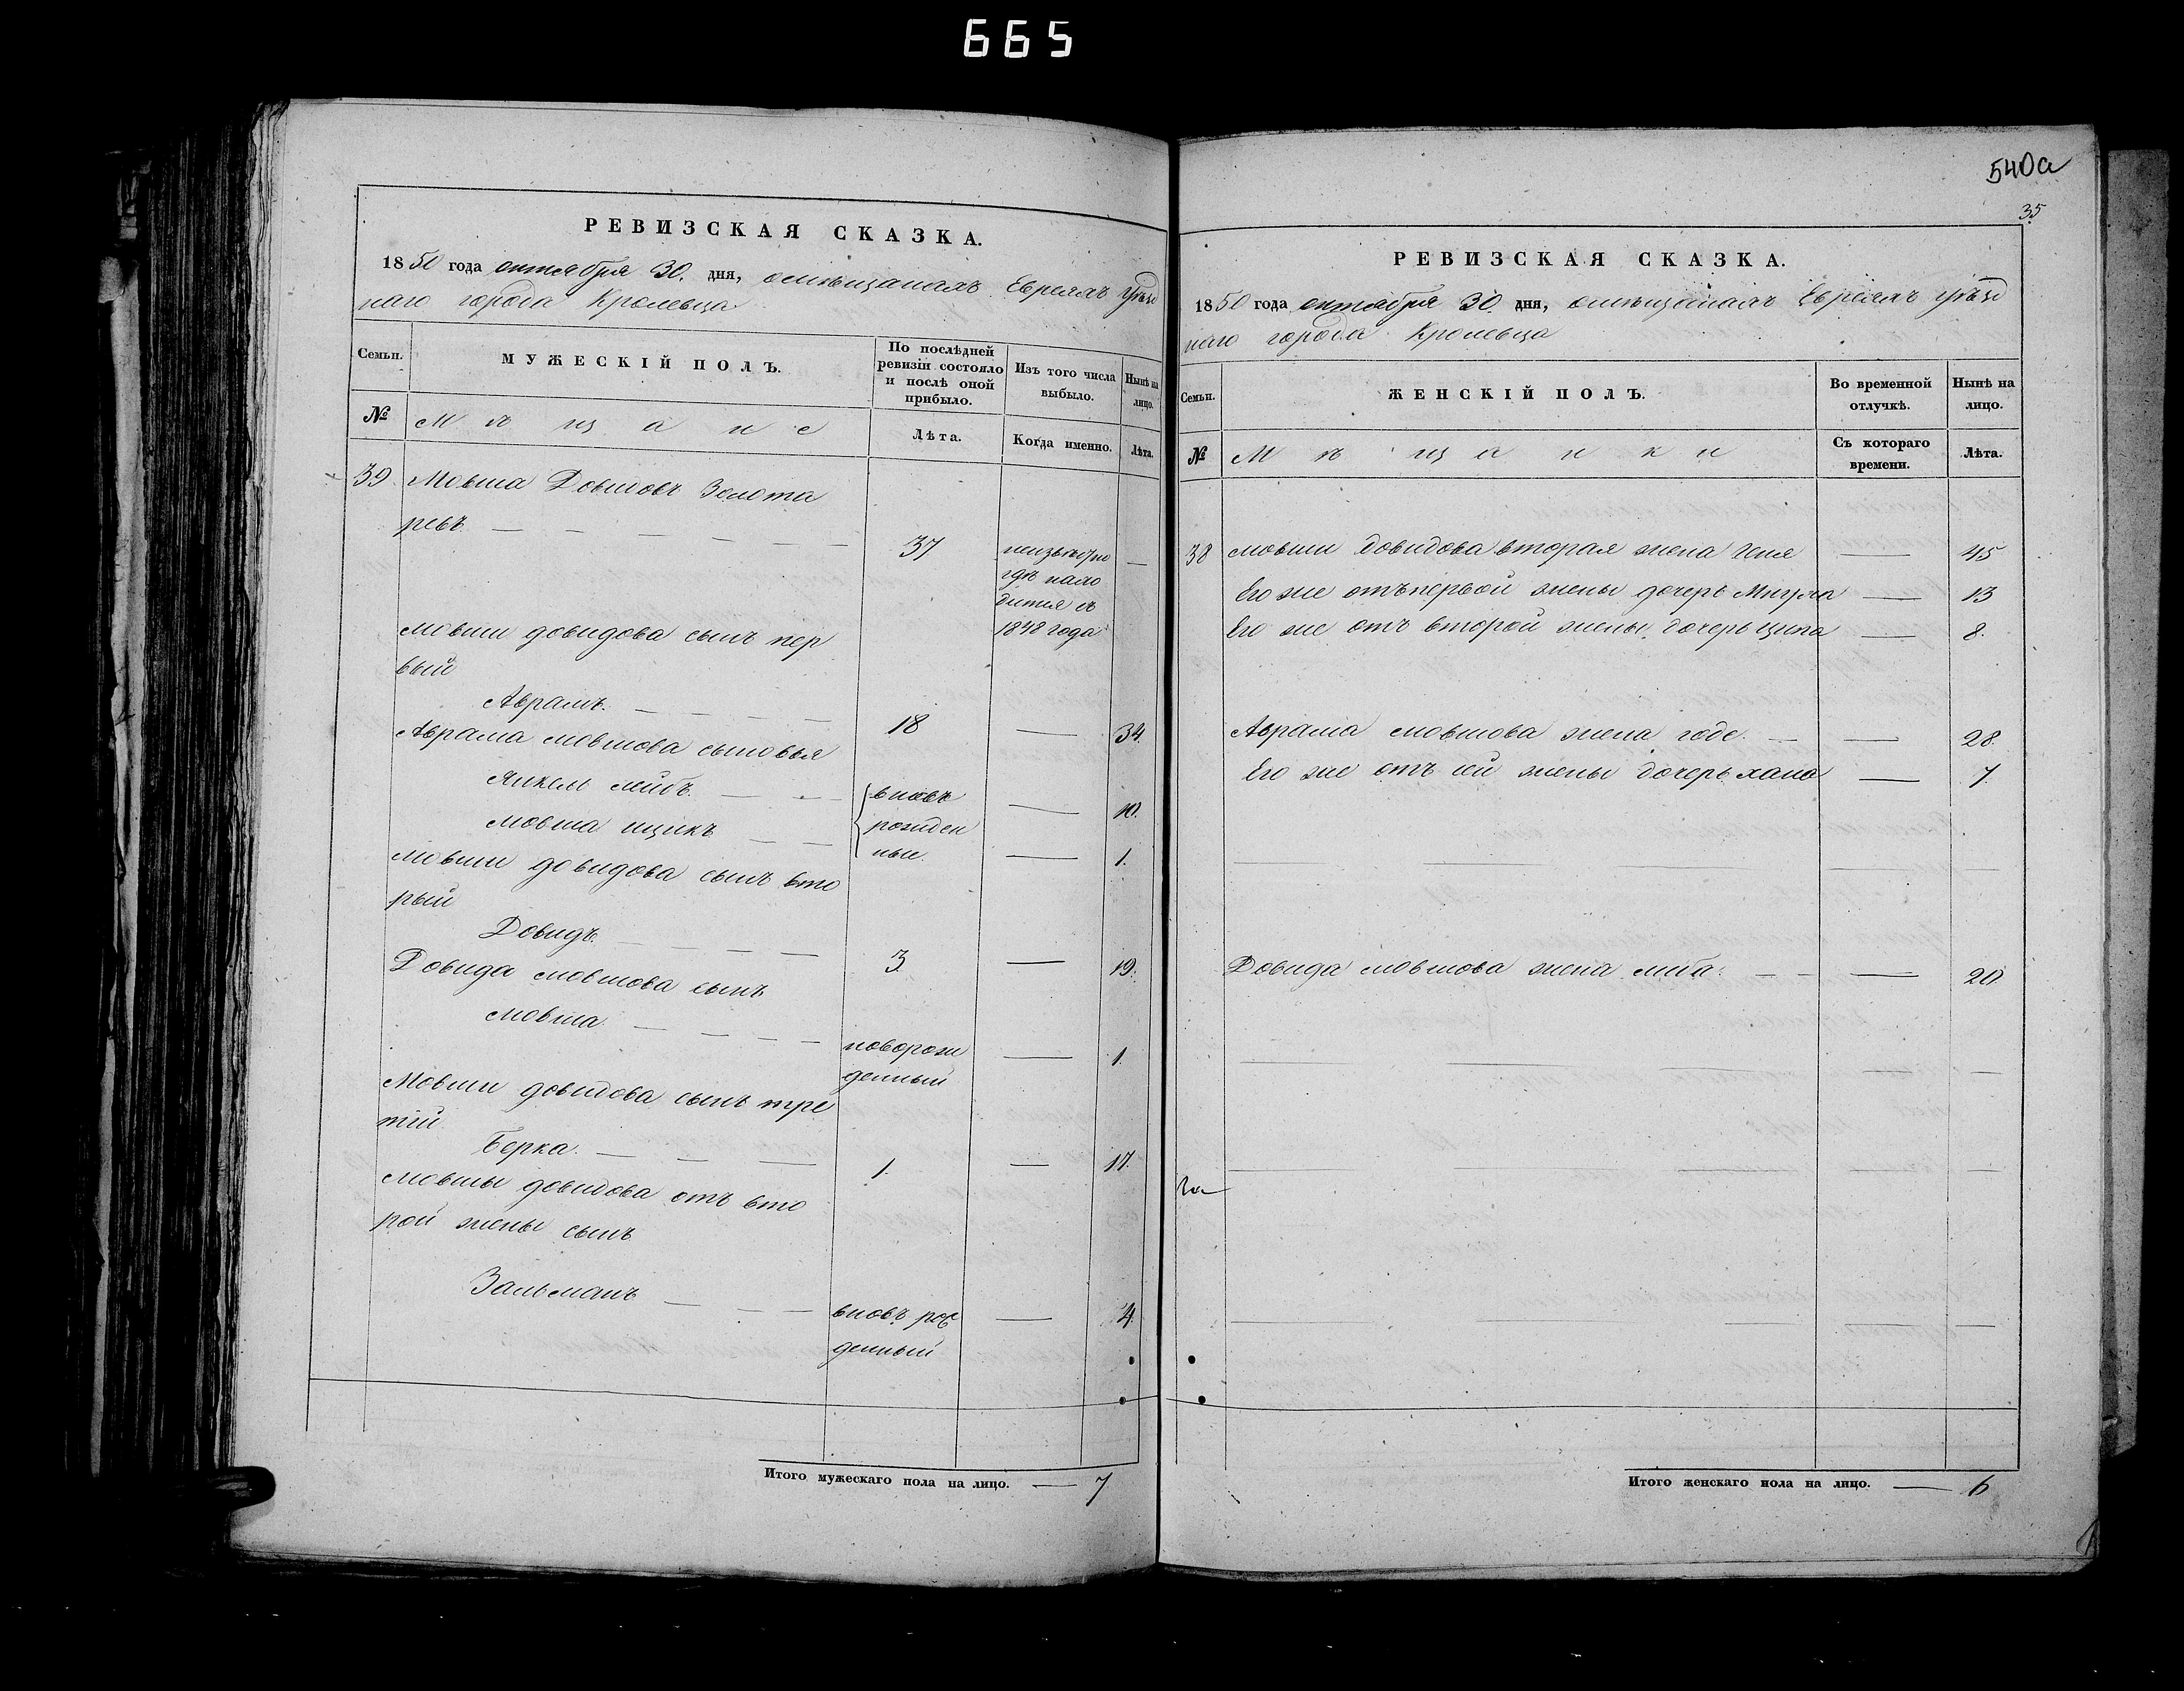 665
РЕВИЗСКАЯ СКАЗКА.
1850 года октября 30. дня, о мѣщанахъ Евреяхъ уѣзд
наго города Кролевца
Семьи.
МУЖЕСКІЙ ПОЛЪ.
По послѣдней
ревизіи состояло
и послѣ оной
прибыло.
Изъ того числа
выбыло.
Нынѣ на
лицо.
№
Мѣщане
Лѣта.
Когда именно.
Лѣта.
39 Мовша Довидовъ Золота
ревъ
37
неизвѣстно
гдѣ нахо
дится съ
1848 года
Мовши довидова сынъ пер
вый
Аврамъ. 18 34.
Аврама мовшова сыновья
Янкель лейбъ вновь 10.
Мовша ицикъ рожден
ные. 1.
Мовши довидова сынъ вто
рый
Довидъ. 3 19.
Довида мовшова сынъ
Мовша новорож 1.
денный
Мовши довидова сынъ тре
тій
Берка. 1. 17.
Мовши довидова отъ вто
рой жены сынъ
Зальманъ вновь рож 4.
денный
Итого мужескаго пола на лицо. 7
540а
35
РЕВИЗСКАЯ СКАЗКА.
1850 года октября 30. дня, о мѣщанахъ Евреяхъ уѣзд
наго города Кролевца
Семьи.
ЖЕНСКІЙ ПОЛЪ.
Во временной
отлучкѣ.
Нынѣ на
лицо.
№
Мѣщанки
Съ котораго
времени.
Лѣта.
38 Мовши Довидова вторая жена Геня 45
Его же отъ первой жены дочерь 13
Его же отъ второй жены дочерь 8.
Аврама мовшова жена годе. 28.
Его же отъ сей жены дочерь хана 7.
Довида мовшова жена либа. 20
Итого женскаго пола на лицо. 6